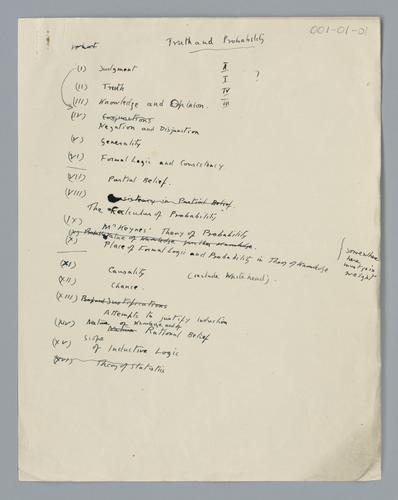 001-01-01
Truth and Probability
(I) Judgment II
(II) Truth I ?
(III) Knowledge and Opinion. IV
III
(IV) Conjunctions
Negation and Disjunction
(V) Generality
(VI) Formal Logic and Consistency
(VII) Partial Belief.
(VIII) Consistency in Partial Belief.
The Calculus of Probability
(IX) Mr Keynes' Theory of Probability
(X) Value of Knowledge
Place of Formal Logic and Probability in Theory of Knowledge
somewhere
here
bring in
weight
(XI) Causality (include Whitehead).
(XII) Chance.
(XIII) Justifications
Attempts to justify Induction
(XIV) Nature of Knowledge and of
Nature Rational Belief
(XV) Scope
of Inductive Logic
(XVI) Theory of Statistics